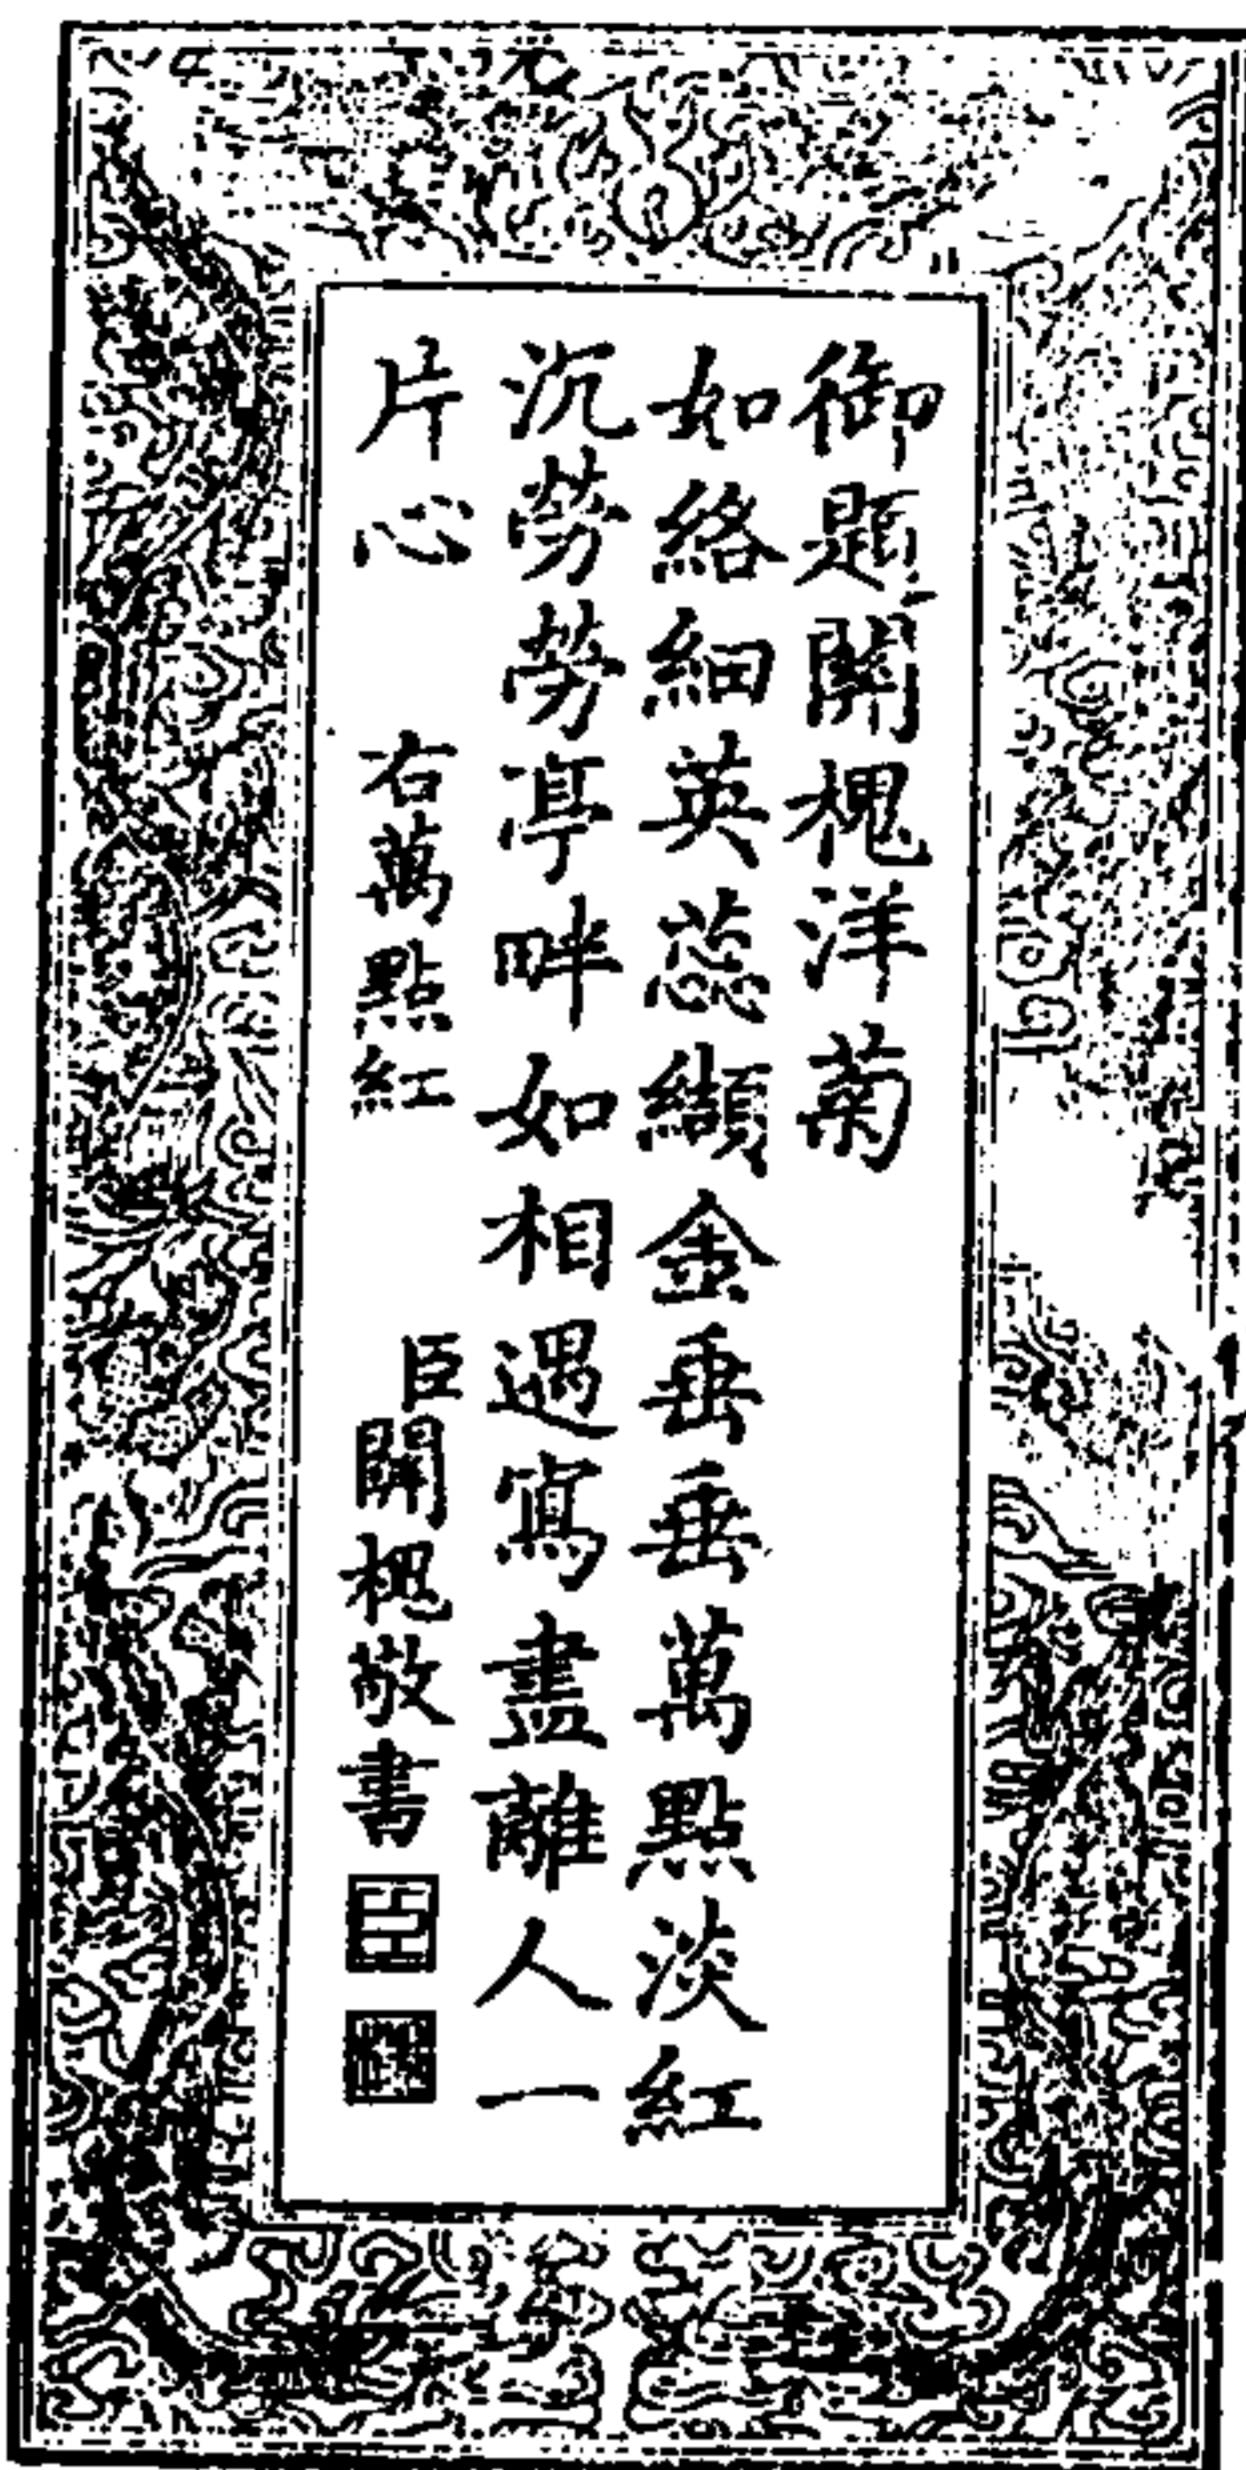 御題關槐洋菊
如絡細英蕊纈金垂垂萬點淡紅
沉勞勞亭畔如相遇寫盡離人一
片心 右萬點紅 臣關槐敬書
臣